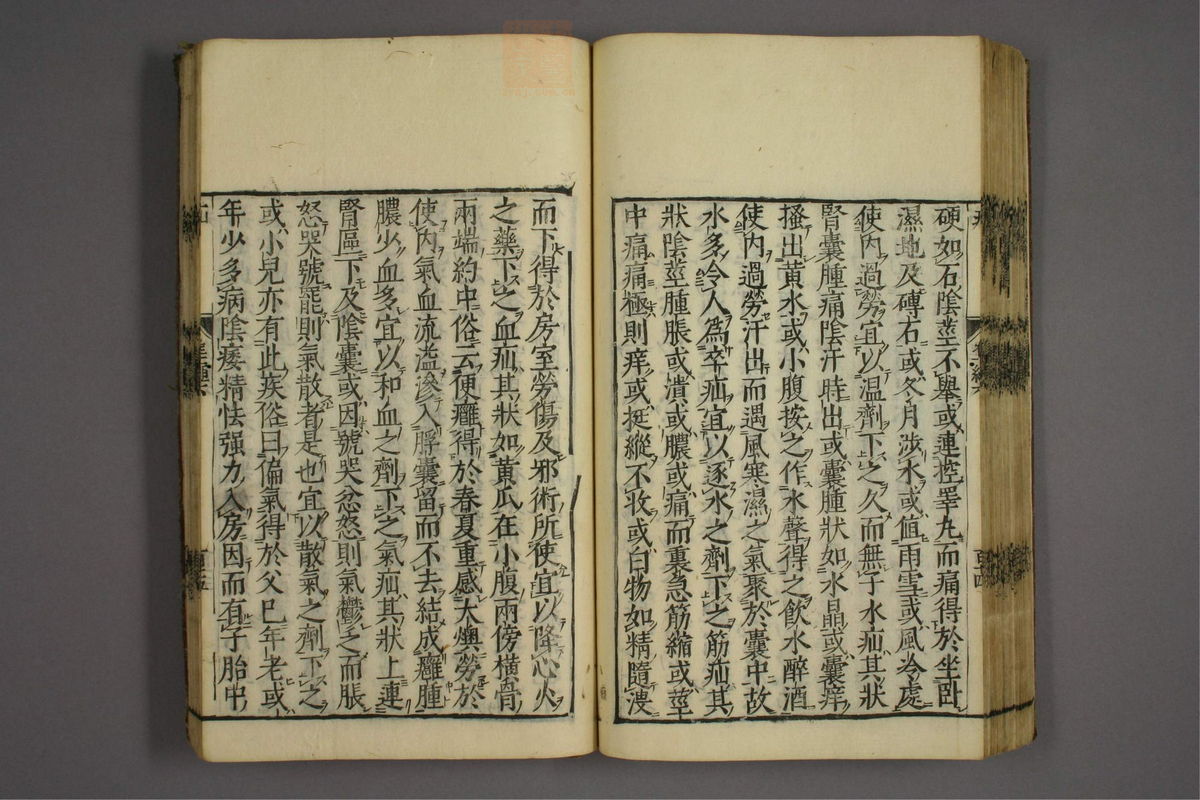 硬如石陰莖不舉或連控睪丸而痛得於坐臥
濕地及磚石或冬月渉水或値雨雪或風冷處
使內過勞宜以温劑下之久而無子水疝其狀
腎囊腫痛陰汗時出或囊腫狀如水晶或囊痒
搔出黃水或小腹按之作水聲得之飲水醉酒
使內過勞汗出而遇風寒濕之氣聚於囊中故
水多令人為卒疝宜以逐水之劑下之筋疝其
狀陰莖腫脹或潰或膿或痛而裏急筋縮或莖
中痛痛極則痒或挺縱不收或白物如精隨溲
而下得於房室勞傷及邪術所使宜以降心火
之藥下之血疝其狀如黃瓜在小腹兩傍横骨
兩端約中俗云便癰得於春夏重感大燠勞於
使內氣血流溢滲入脬囊留而不去結成癰腫
膿少血多宜以和血之劑下之氣疝其狀上連
腎區下及陰囊或因號哭忿怒則氣鬱之而脹
怒哭號罷則氣散者是也宜以散氣之劑下之
或小兒亦有此疾俗曰偏氣得於父已年老或
年少多病陰痿精怯强力入房因而有子胎中